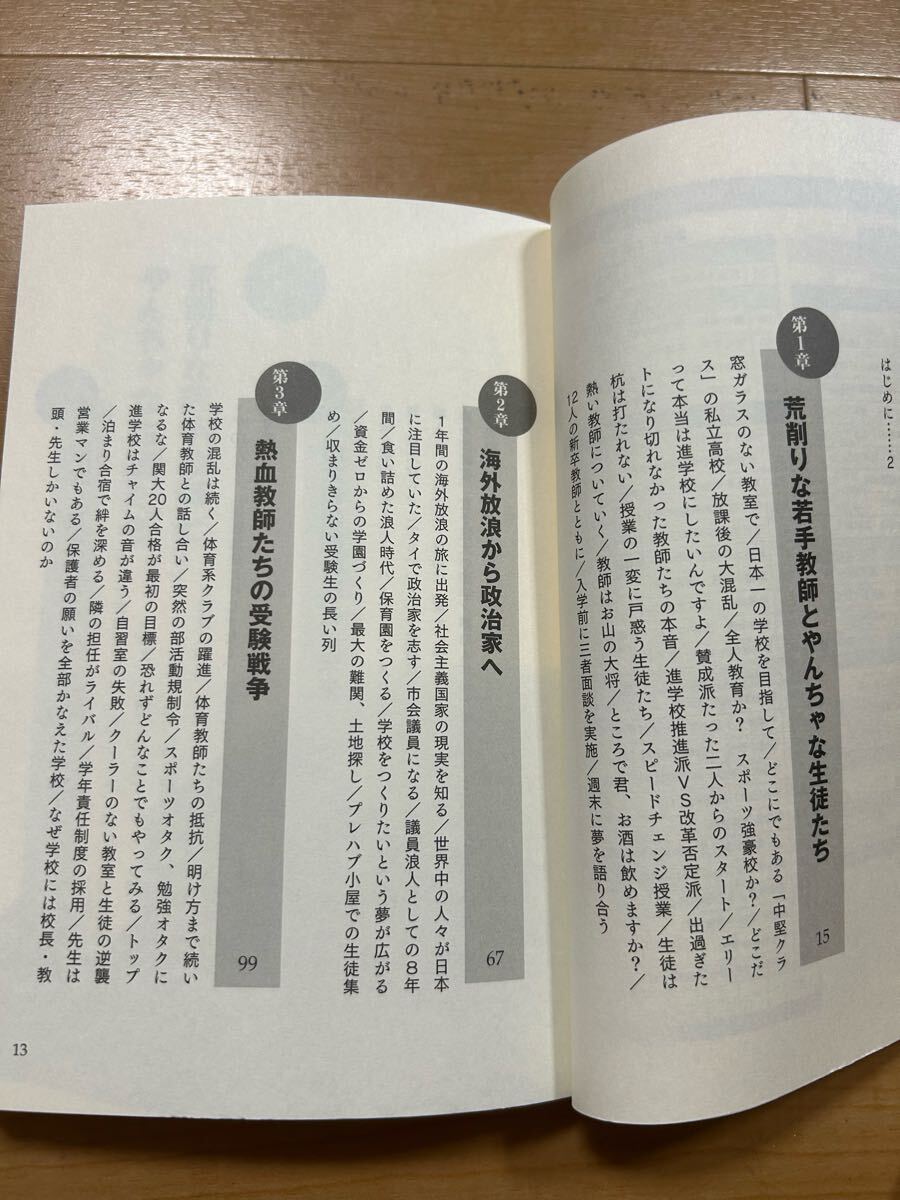 はじめに……2
第1章
荒削りな若手教師とやんちゃな生徒たち
15
窓ガラスのない教室で／日本一の学校を目指して／どこにでもある「中堅クラ
ス」の私立高校／放課後の大混乱／全人教育か？　スポーツ強豪校か？／どこだ
って本当は進学校にしたいんですよ／賛成派たった二人からのスタート／エリー
トになり切れなかった教師たちの本音／進学校推進派VS改革否定派／出過ぎた
杭は打たれない／授業の一変に戸惑う生徒たち／スピードチェンジ授業／生徒は
熱い教師についていく／教師はお山の大将／ところで君、お酒は飲めますか？／
12人の新卒教師とともに／入学前に三者面談を実施／週末に夢を語り合う
第2章
海外放浪から政治家へ
67
1年間の海外放浪の旅に出発／社会主義国家の現実を知る／世界中の人々が日本
に注目していた／タイで政治家を志す／市会議員になる／議員浪人としての8年
間／食い詰めた浪人時代／保育園をつくる／学校をつくりたいという夢が広がる
／資金ゼロからの学園づくり／最大の難関、土地探し／プレハブ小屋での生徒集
め／収まりきらない受験生の長い列
第3章
熱血教師たちの受験戦争
99
学校の混乱は続く／体育系クラブの躍進／体育教師たちの抵抗／明け方まで続い
た体育教師との話し合い／突然の部活動規制令／スポーツオタク、勉強オタクに
なるな／関大20人合格が最初の目標／恐れずどんなことでもやってみる／トップ
進学校はチャイムの音が違う／自習室の失敗／クーラーのない教室と生徒の逆襲
／泊まり合宿で絆を深める／隣の担任がライバル／学年責任制度の採用／先生は
営業マンでもある／保護者の願いを全部かなえた学校／なぜ学校には校長・教
頭・先生しかいないのか
13